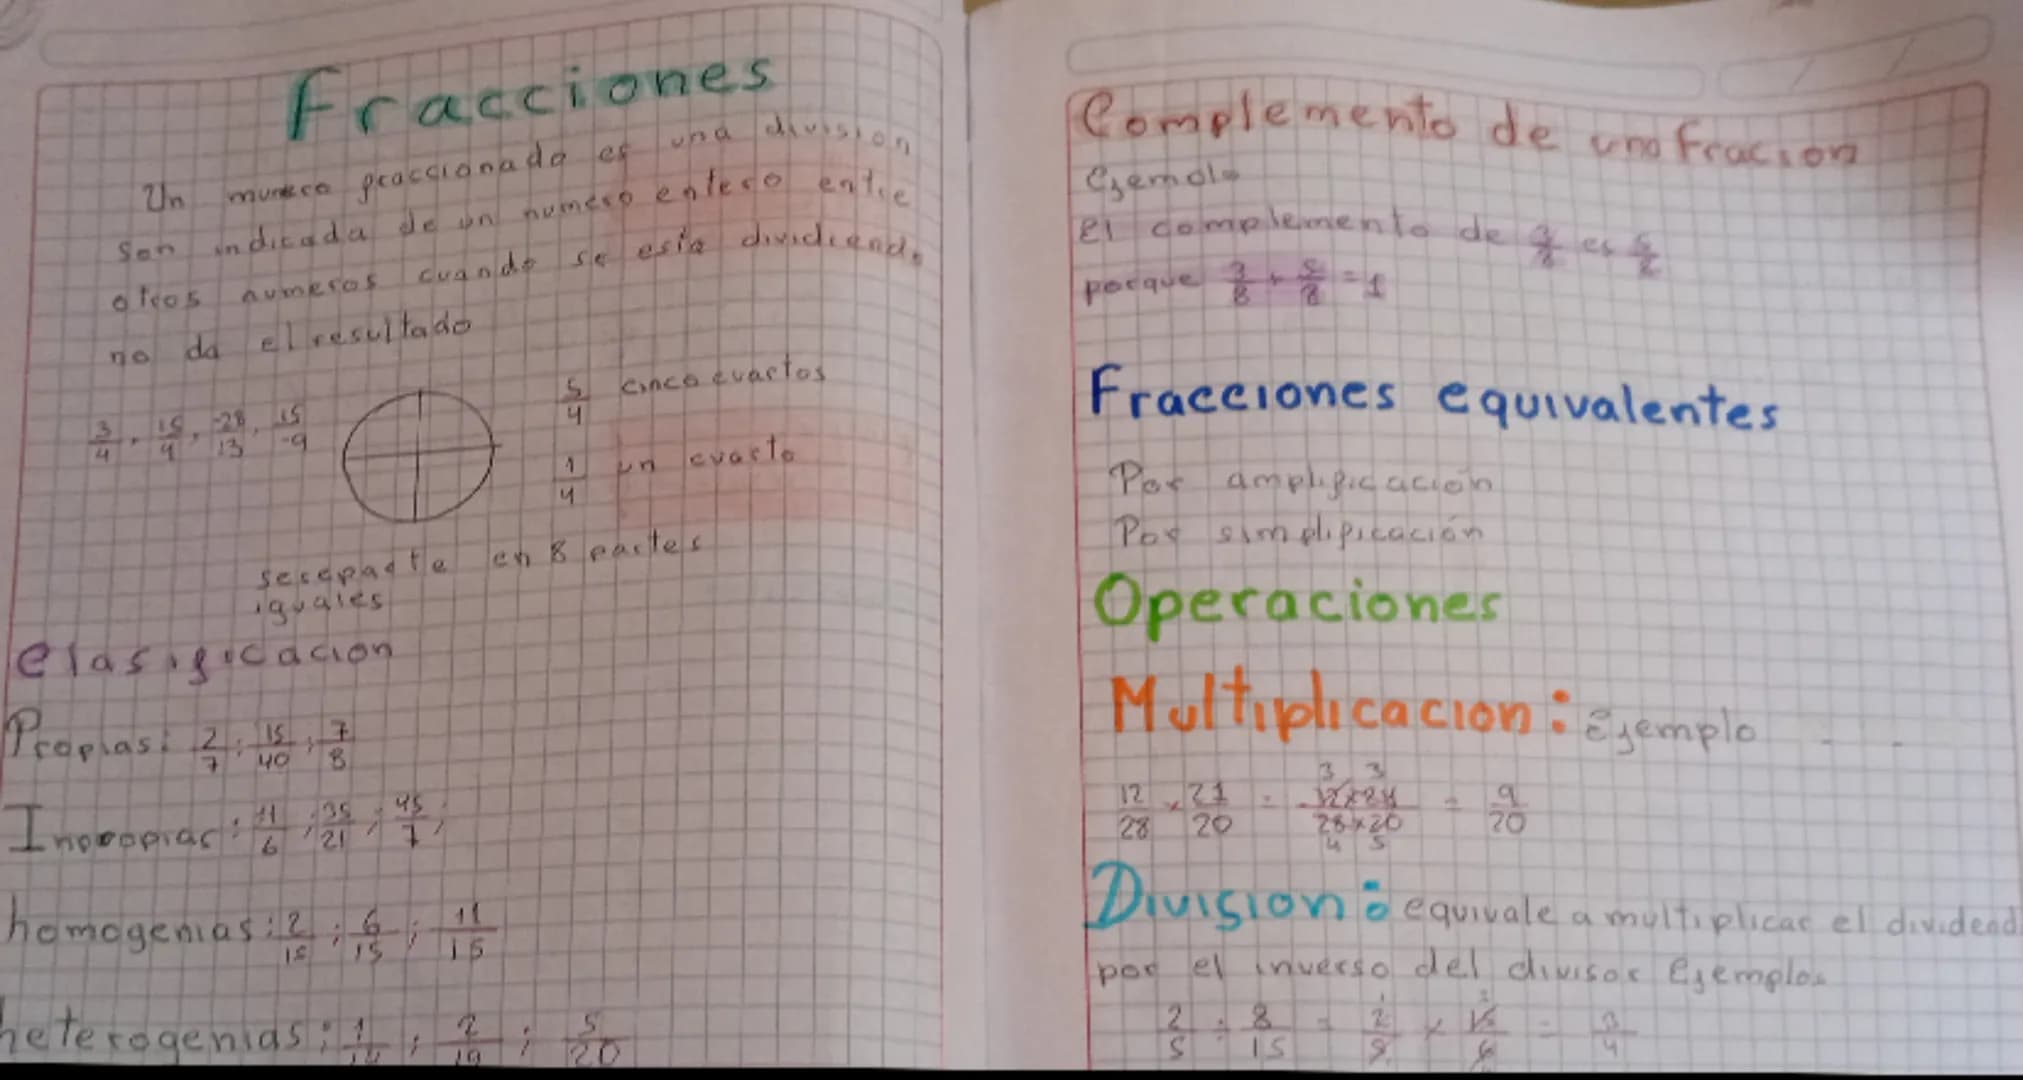 Fracciones
Un numero fraccionado es una division
son indicada de un numero entero entre
otros numeros cuando se esta dividiendo
no da el resultado
3/4, 15/4, -28/13, 15/-9
5/4 cinco cuartos
1/4 un cuarto
sereparte en 8 partes
iguales
Clasificacion
Propias: 2/7; 15/40; 7/8
Impropias: 11/6; 35/21; 45/7;
homogenias: 2/15; 6/15; 11/15
heterogenias: 1/14; 2/19; 5/20
Complemento de una fracion
Ejemplo
el complemento de 3/8 es 5/8
porque 3/8 + 5/8 = 1
Fracciones equivalentes
Por amplificación
Por simplificación
Operaciones
Multiplicacion: Ejemplo
12/28 x 21/20 = 12x21/28x20 = 9/20
3 3
4 5
Division: equivale a multiplicar el dividend
por el inverso del divisor Ejemplos
2/5 : 8/15 = 2/5 x 15/ = 3/4